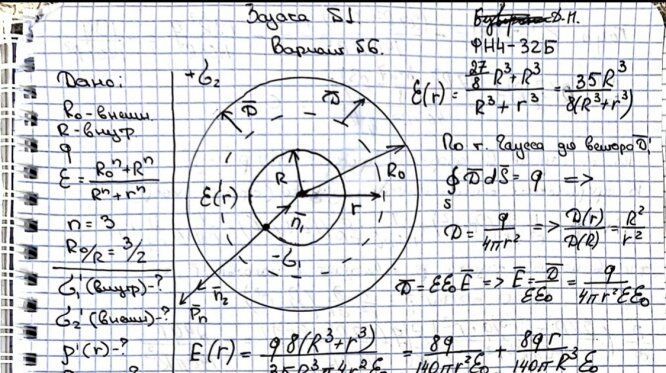 Задача Б1
Д.Н.
Вариант 56.
ФН4-32Б
Дано:
R₀-внешн.
R-внутр
q
ε = (R₀ⁿ+Rⁿ)/(Rⁿ+rⁿ)
n=3
R₀/R = 3/2
σ₁'(внутр)-?
σ₂'(внешн)-?
ρ'(r)-?
+σ₂'
D̅
D̅
R₀
R
ε(r)
r
n̅₁
-σ₁'
n̅₂
P̅n
ε(r) = (27/8 R³+R³)/(R³+r³) = 35R³/8(R³+r³)
По т. Гаусса для вектора D̅:
∮ D̅dS̅ = q =>
S
D = q/4πr² => D(r)/D(R) = R²/r²
D̅ = εε₀E̅ => E̅ = D̅/εε₀ = q/4πr²εε₀
E(r) = q8(R³+r³)/35R³π4r²ε₀ = 8q/140πr²ε₀ + 8qr/140πR³ε₀